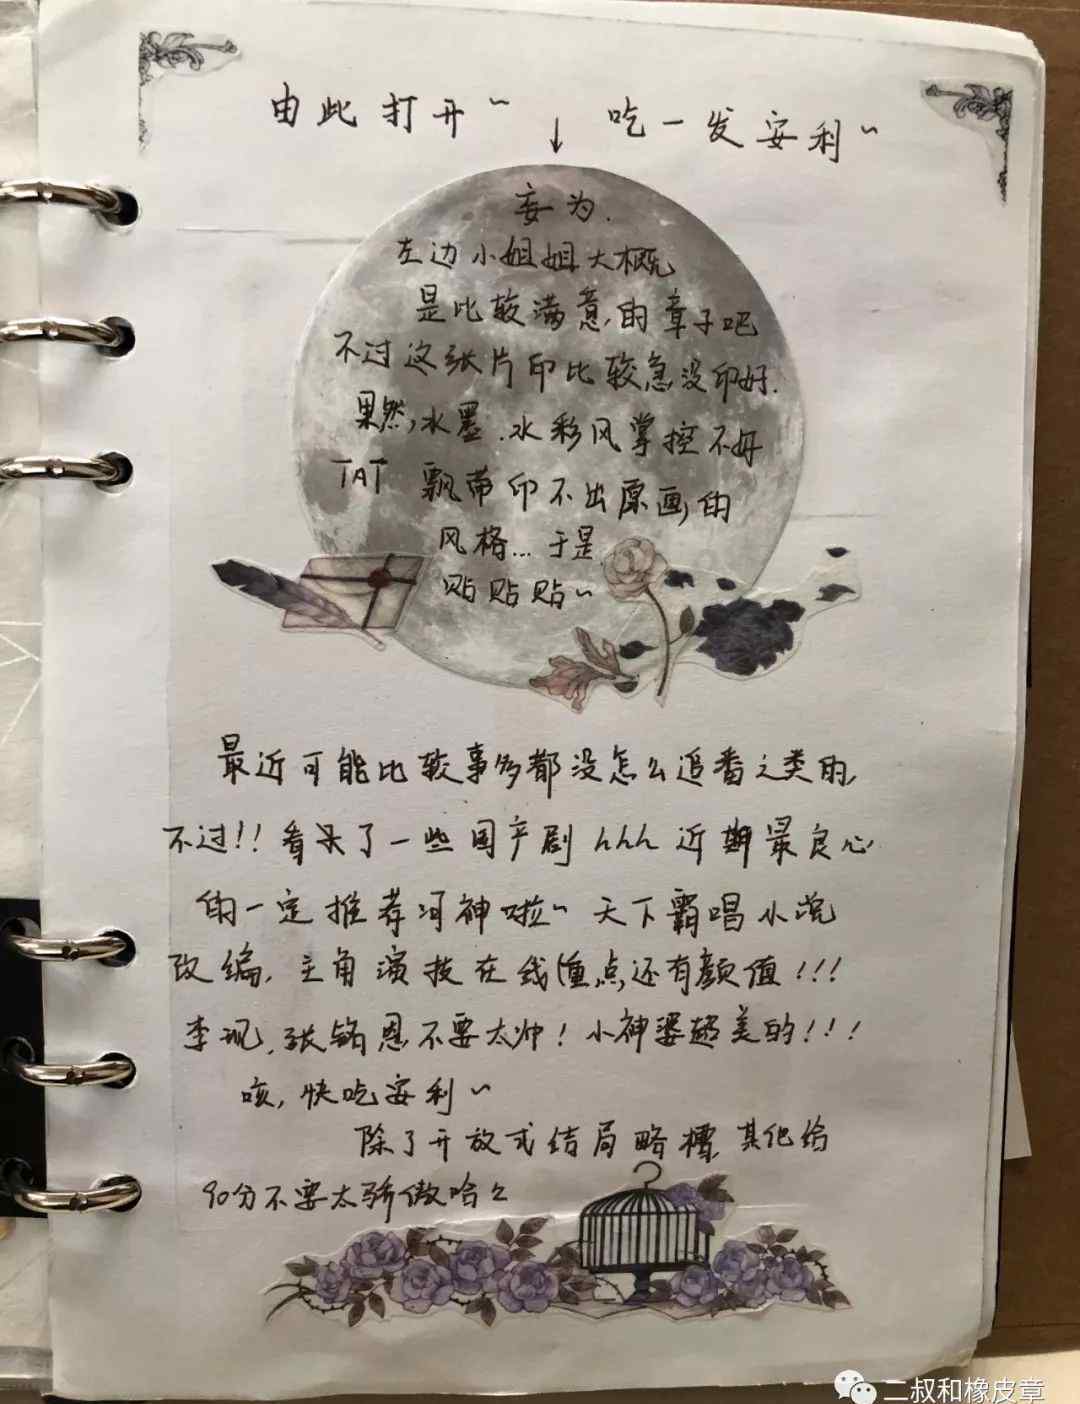 由此打开~ ↓ 吃一发安利~
妄为.
左边小姐姐大概
是比较满意的章子吧
不过这张片印比较急没印好.
果然,水墨.水彩风掌控不好
TAT 飘带印不出原画的
风格...于是
贴贴贴~
最近可能比较事多都没怎么追番之类的,
不过!!看了一些国产剧hhh近期最良心
的一定推荐河神啦~天下霸唱小说
改编,主角演技在线(重点,还有颜值!!!
李现,张铭恩不要太帅!小神婆超美的!!!
咳,快吃安利~
除了开放式结局略糟,其他给
90分不要太骄傲哈
二叔和橡皮章